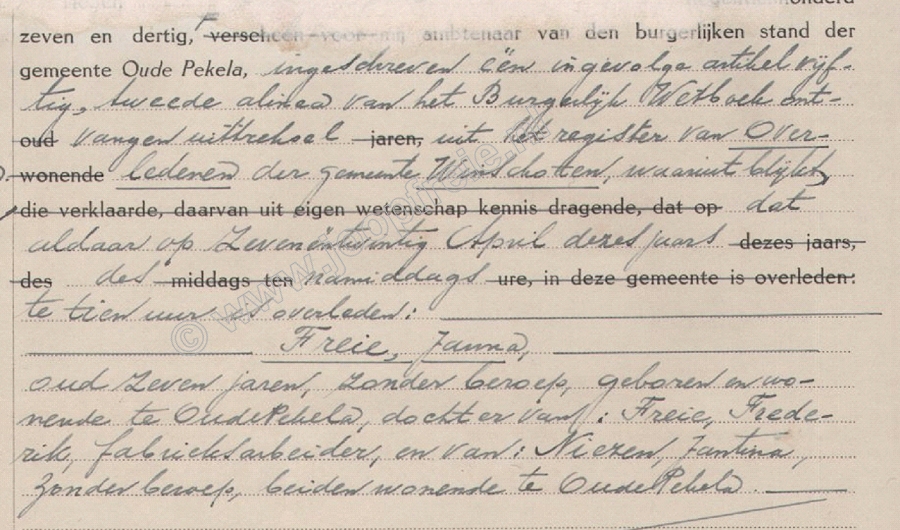 zeven en dertig, verscheen voor mij ambtenaar van den burgerlijken stand der
gemeente Oude Pekela, ingeschreven één ingevolge artikel vijf-
tig, tweede alinea van het Burgerlijk Wetboek ont-
oud vangen uittreksel jaren, uit het register van Over-
wonende ledenen der gemeente Winschoten, waaruit blijkt,
die verklaarde, daarvan uit eigen wetenschap kennis dragende, dat op dat
aldaar op Zevenëntwintig April dezes jaars dezes jaars,
des des middags ten namiddags ure, in deze gemeente is overleden:
te tien uur is overleden:
Freie, Janna,
oud zeven jaren, zonder beroep, geboren en wo-
nende te Oude Pekela, dochter van: Freie, Frede-
rik, fabrieksarbeider, en van: Niezen, Jantina,
zonder beroep, beiden wonende te Oude Pekela.
© www.joopfreie.nl